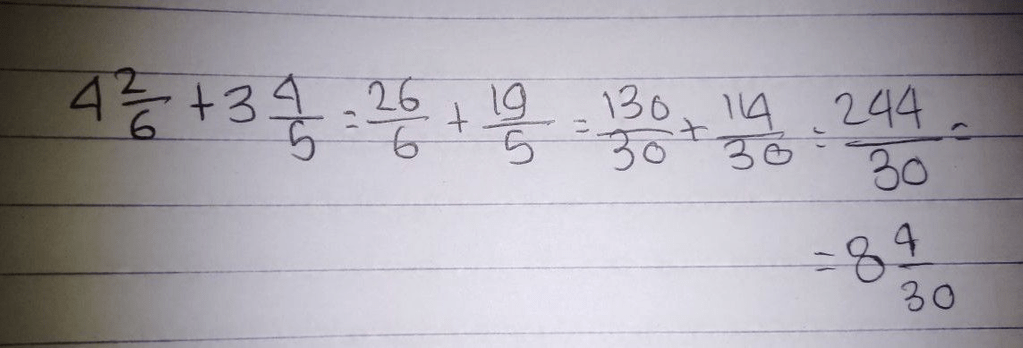 4 2/6 + 3 4/5 = 26/6 + 19/5 = 130/30 + 114/30 = 244/30 =
= 8 4/30